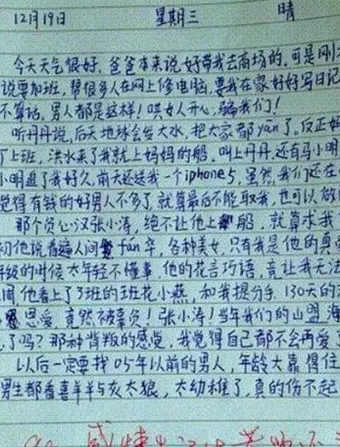 12月19日 星期三 晴
今天天气很好,爸爸本来说好带我去商场的,可是刚才
说要加班,帮很多人在网上修电脑,要我在家好好写日记
不算话,男人都是这样!哄女人开心,骗我们!
听丹丹说,后天地球会发大水,把大家都yān了,反正妈
丁上班,洪水来了我就上妈妈的船,叫上丹丹,还有马小明
小明追了我好久,前天还送我一个iphone5,虽然我们还在
觉得有钱的好男人不多了,就算最后不能取我,也可以做
那个负心汉张小涛,绝不让他上船,就算求我
初他说看遍人间fán华,各种美女,只有我是他的真
年级的时候太年轻不懂事,他的花言巧语,竟让我无法
间他看上了3班的班花小燕,和我提分手,130天的
恩恩爱,竟然被辜负!张小涛!当年我们的山盟海
了吗?那种背叛的感觉,我觉得自己都不会再爱了
以后一定要找05年以前的男人,年龄大靠得住
男生都看喜羊羊与灰太狼,太幼稚了,真的伤不起
感情